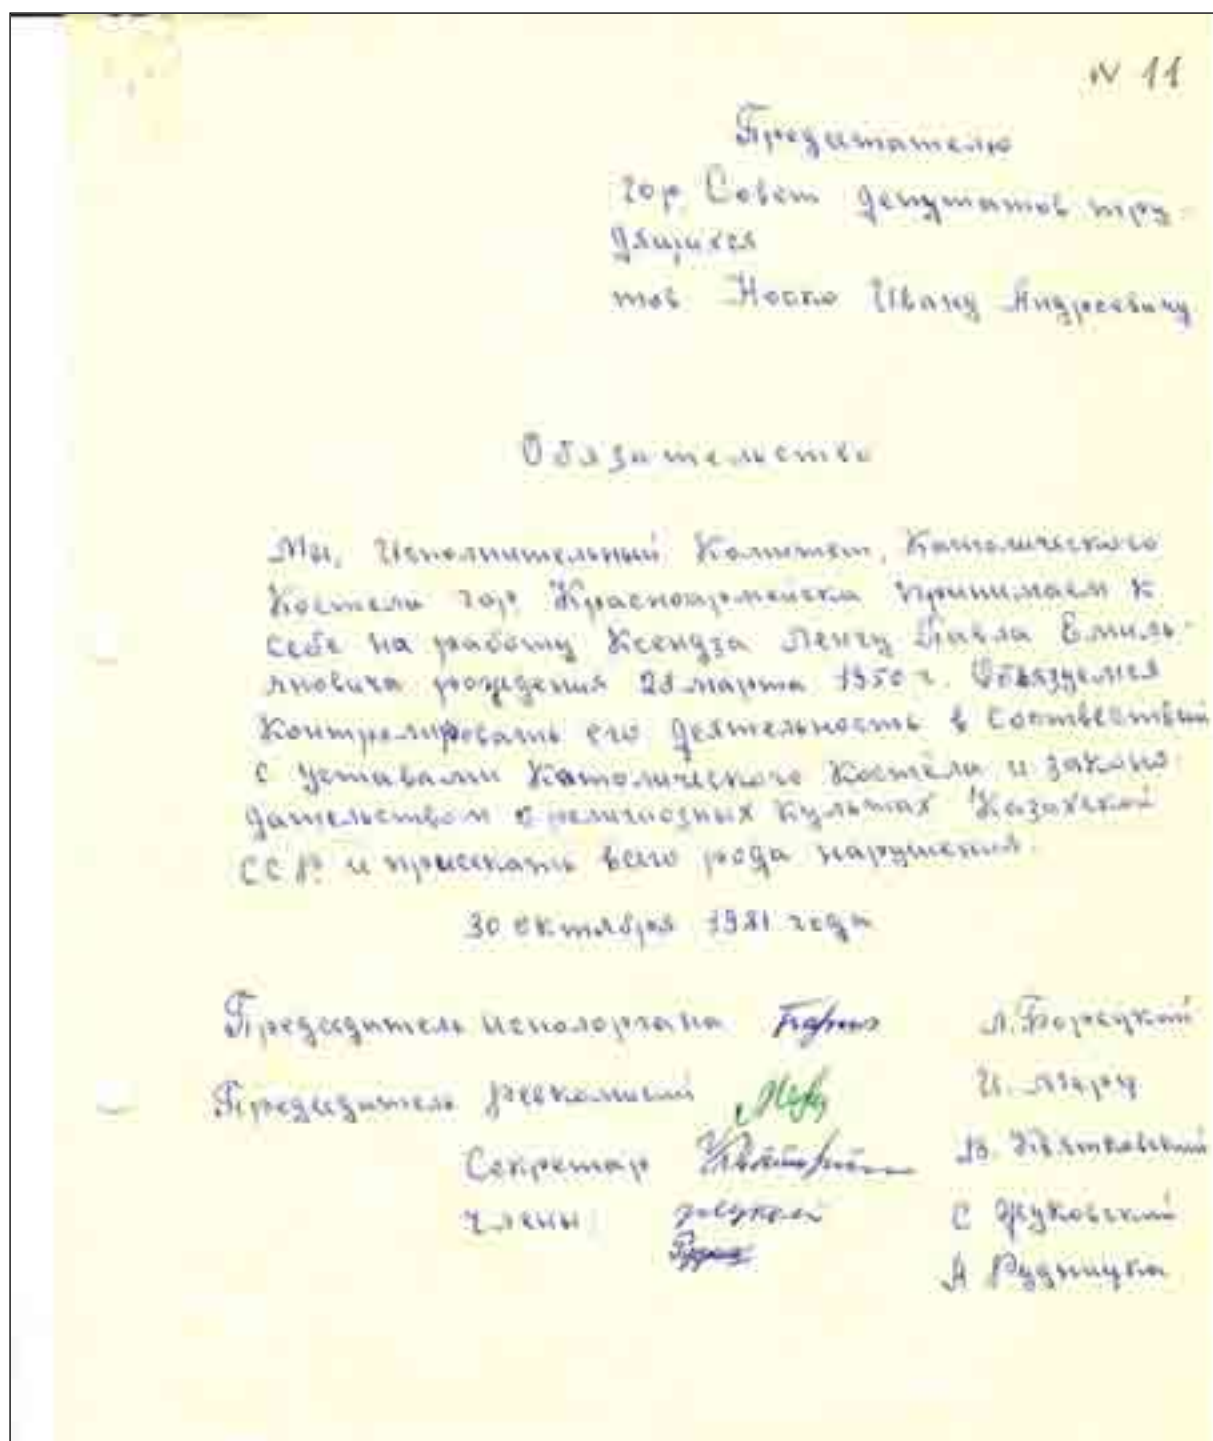 N 11
Председателю
гор. Совет депутатов тру-
дящихся
тов. Носко Ивану Андреевичу
Обязательство
Мы, Исполнительный Комитет, Католического
Костела гор. Красноармейска принимаем к
себе на работу Ксендза Ленгу Павла Емиль-
яновича рождения 28 марта 1950 г. Обязуемся
Контролировать его деятельность в соотвествий
с уставами Католического Костела и законо-
дательством о религиозных культах Казахской
ССР. и присекать всего рода нарушения.
30 октября 1981 года
Председатель исполоргана Л. Борецкий
Председатель ревкомисий И.
Секретар В. Квятковский
члены: С Жуковский
А Рудницка